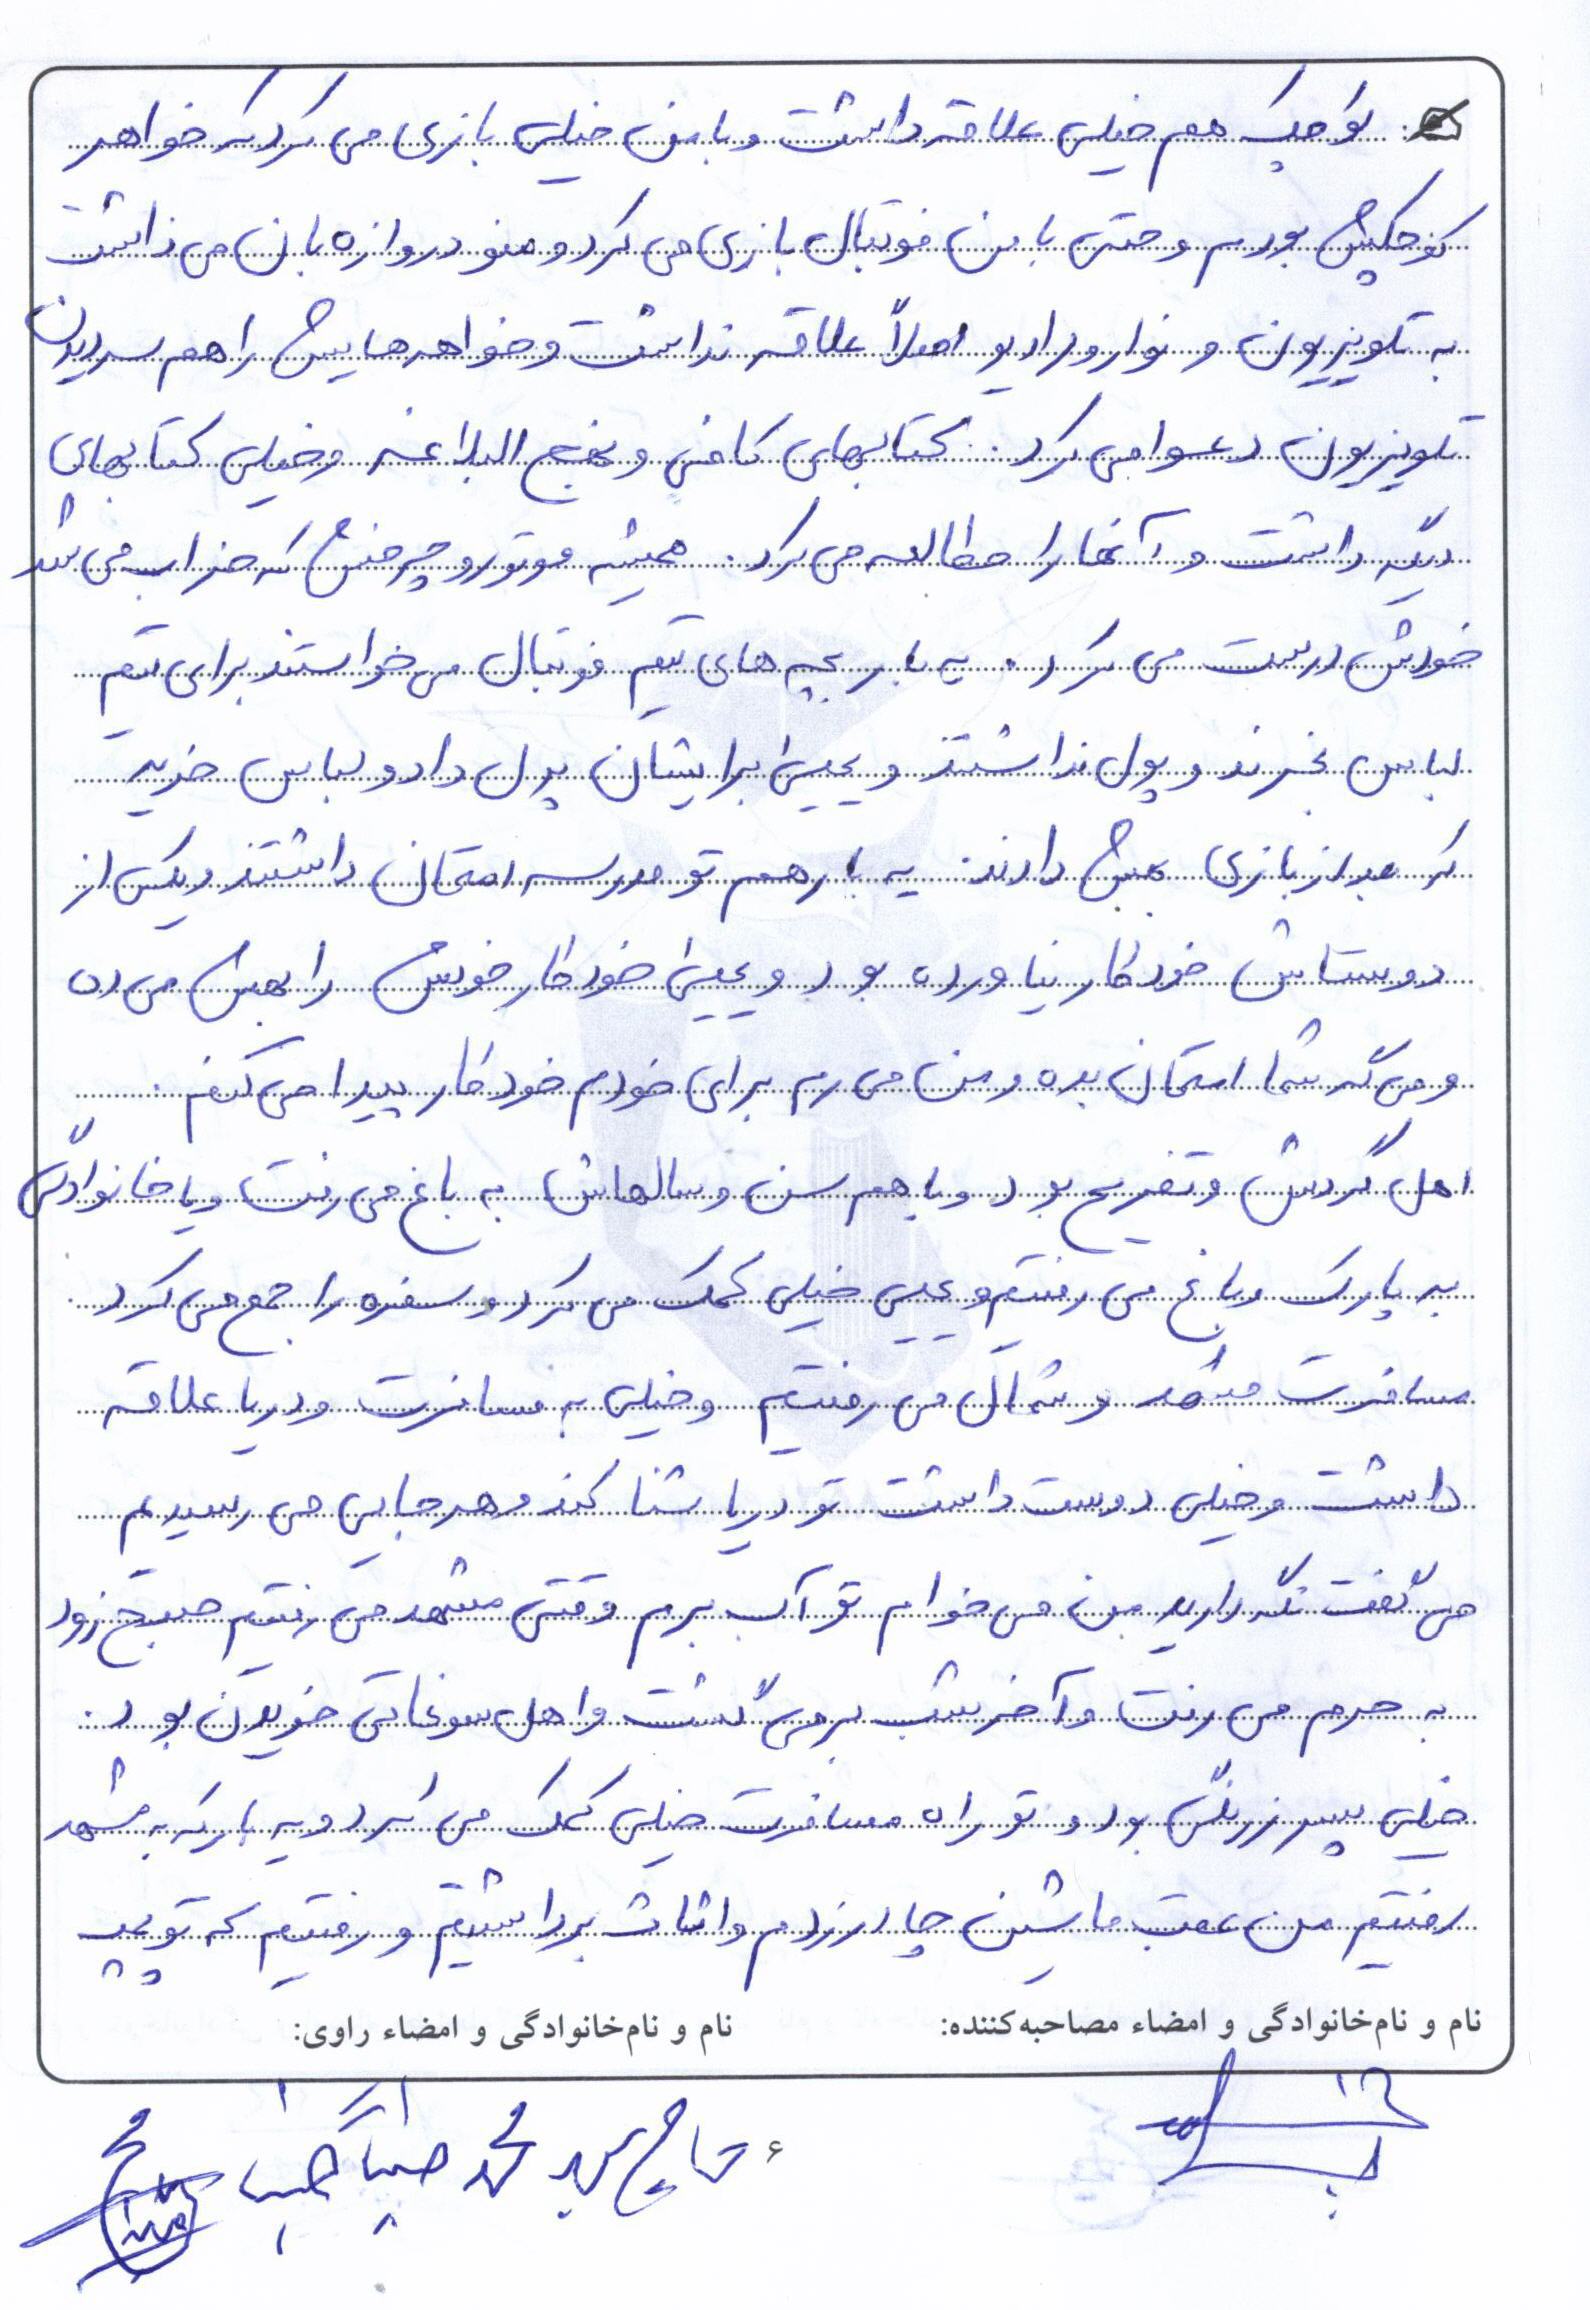 کوچک هم خیلی علاقه داشت و با من خیلی بازی می کرد که خواهر
کوچکش بودم و حتی با من فوتبال بازی می کرد و منو دروازه بان می ذاشت
به تلویزیون و نوار و رادیو اصلاً علاقه نداشت و خواهرهایش را هم سر دیدن
تلویزیون دعوا می کرد. کتابهای کافی و نهج البلاغه و خیلی کتابهای
دیگه داشت و آنها را مطالعه می کرد. همیشه موتور و چرخش که خراب می شد
خودش درست می کرد. یه بار بچه های تیم فوتبال می خواستند برای تیم
لباس بخرند و پول نداشتند و یحیی برایشان پول داد و لباس خرید
که بعد از بازی بهش دادند. یه بار هم تو مدرسه امتحان داشتند و یکی از
دوستاش خودکار نیاورده بود و یحیی خودکار خودش را بهش می ده
و می گه شما امتحان بده و من می رم برای خودم خودکار پیدا می کنم.
اهل گردش و تفریح بود و با هم سن و سالهاش به باغ می رفت و با خانوادگی
به پارک و باغ می رفتیم و یحیی خیلی کمک می کرد و سفره را جمع می کرد.
مسافرت مشهد و شمال می رفتیم و خیلی به مسافرت و دریا علاقه
داشت و خیلی دوست داشت تو دریا شنا کند و هر جایی می رسیدیم
می گفت نگه دارید من می خوام تو آب برم وقتی مشهد می رفتیم صبح زود
به حرم می رفت و آخر شب برمی گشت و اهل سوغاتی خریدن بود.
خیلی پسر زرنگی بود و تو راه مسافرت خیلی کمک می کرد و یه بار که به مشهد
رفتیم من عقب ماشین چادر زدم و اثاث برداشتیم و رفتیم که تو پمپ
نام و نام‌خانوادگی و امضاء مصاحبه‌کننده: نام و نام‌خانوادگی و امضاء راوی:
۶